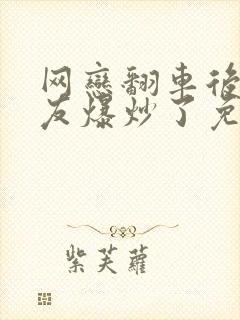 网戀翻車後
友爆炒了免
紫芙蘿